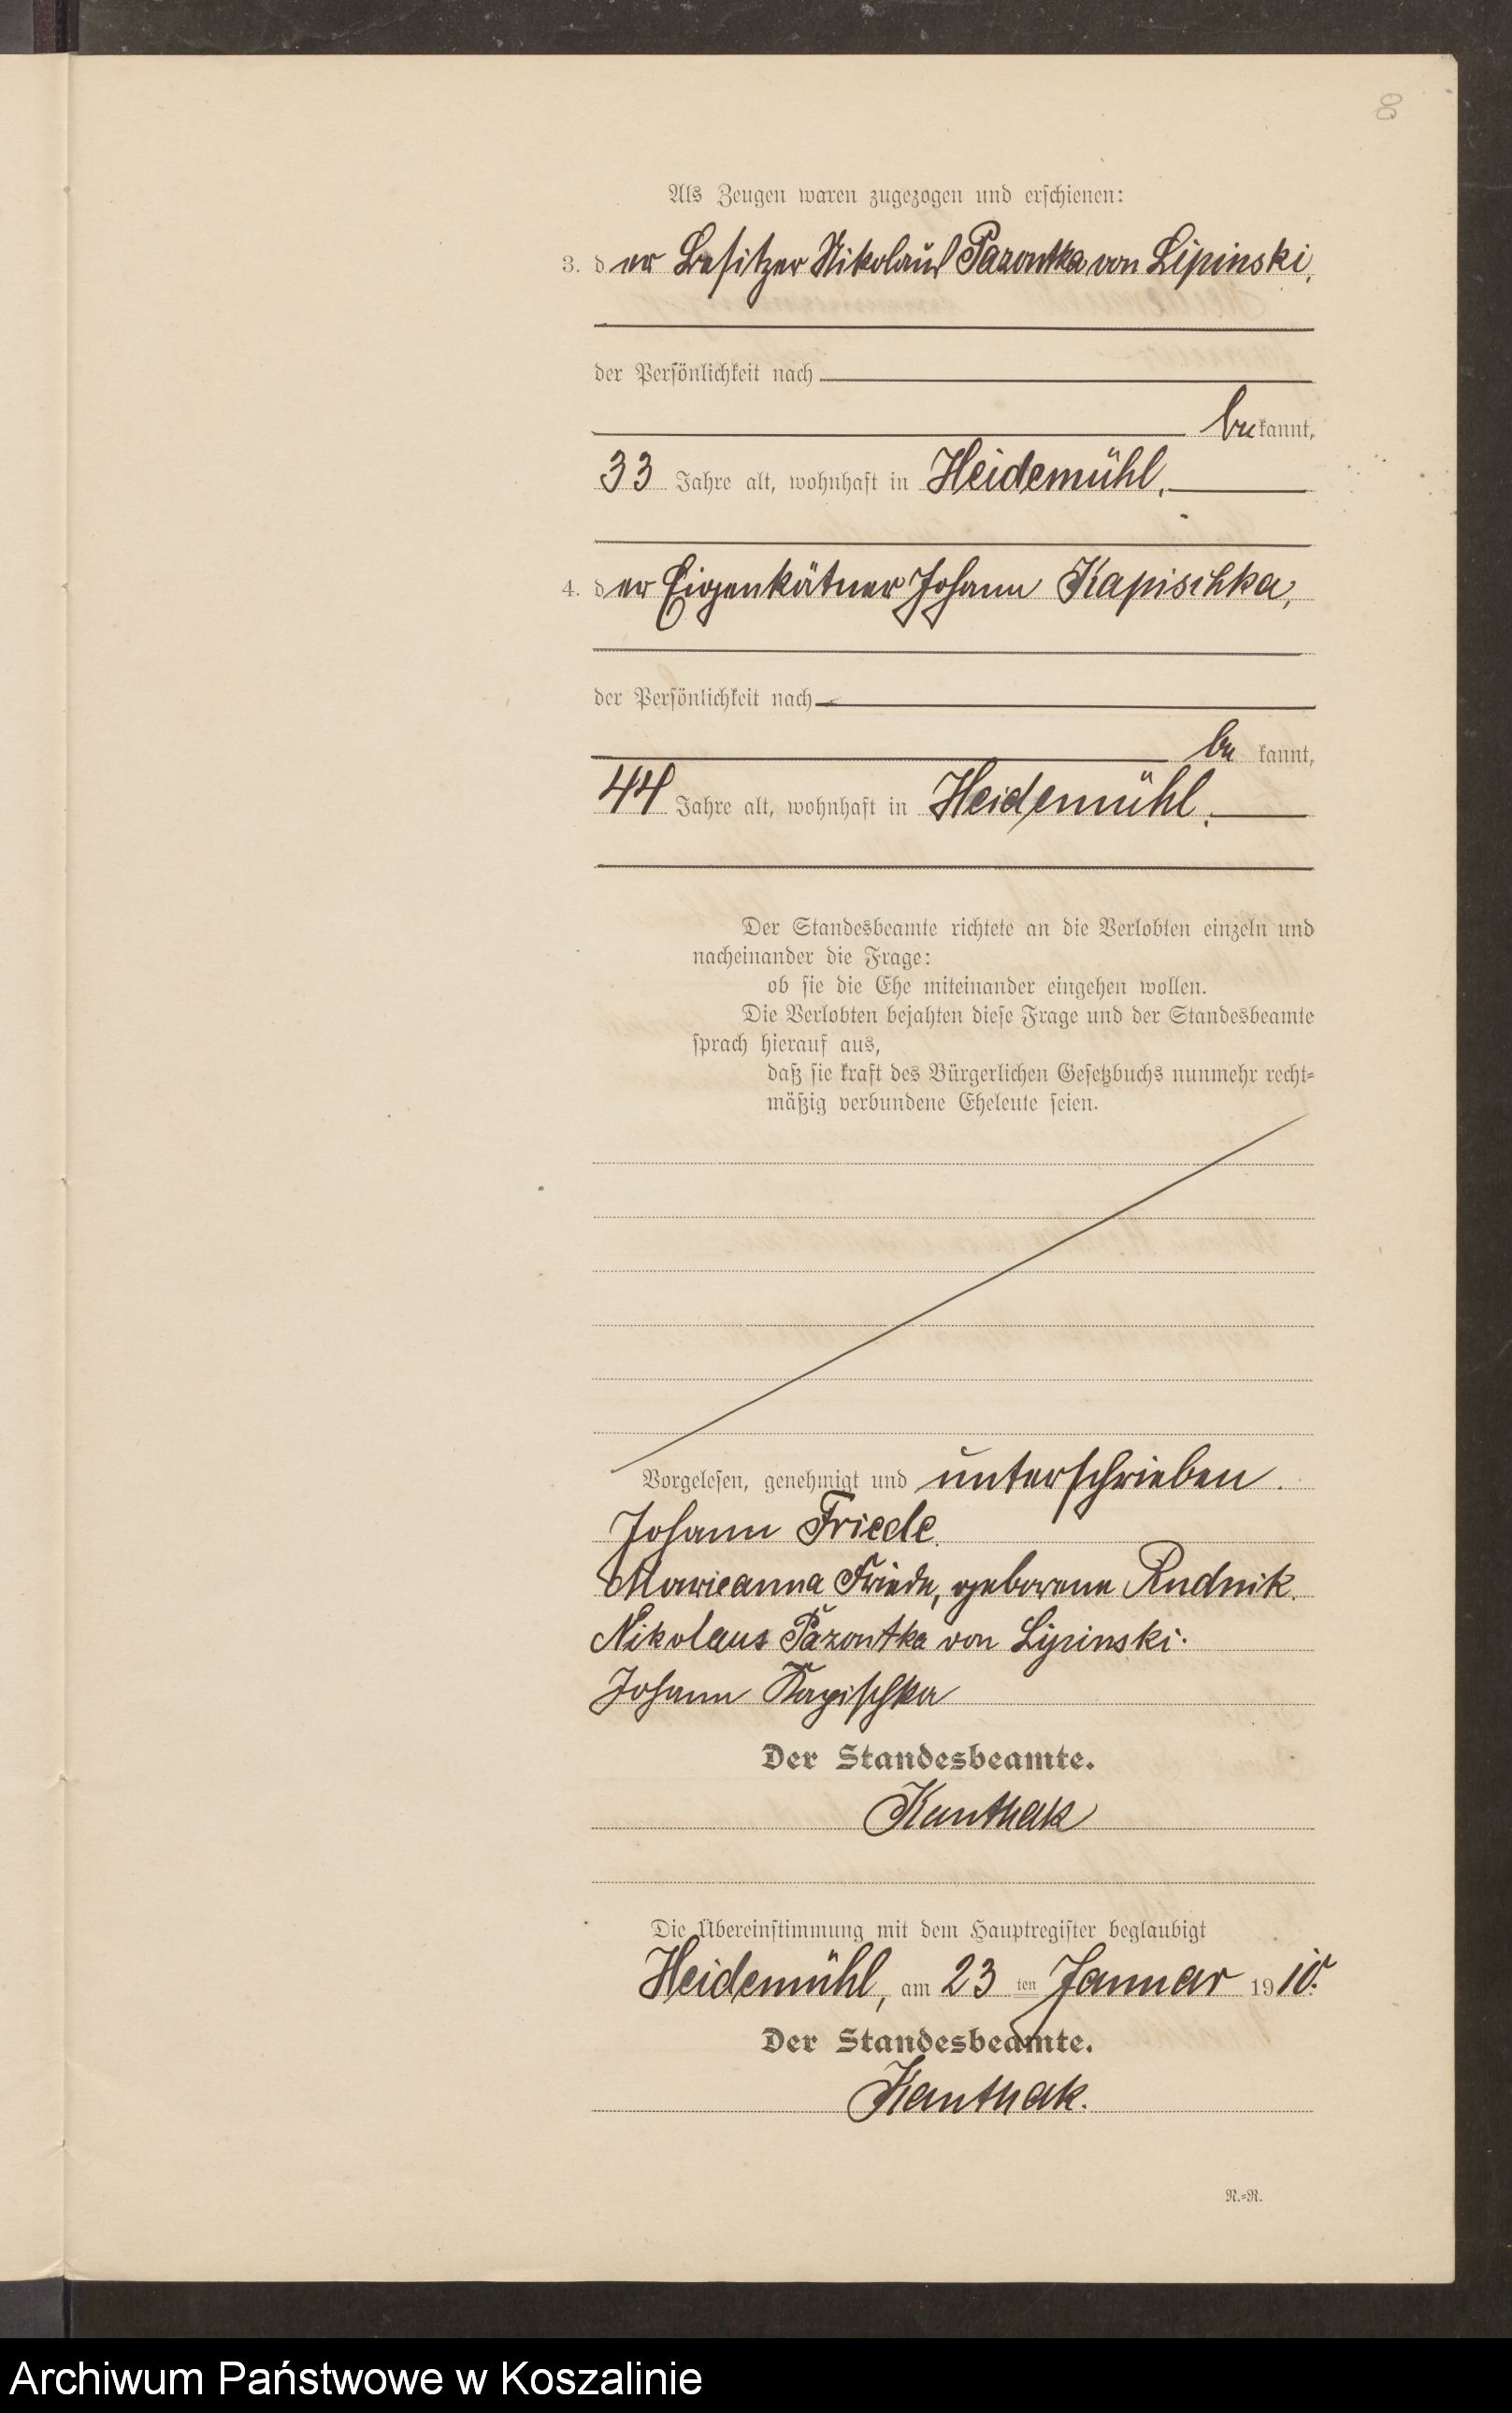 8
Als Zeugen waren zugezogen und erschienen:
3. der Besitzer Nikolaus Pazontka von Lipinski,
der Persönlichkeit nach
bekannt,
33 Jahre alt, wohnhaft in Heidemühl,
4. der Eigenkätner Johann Kapischka,
der Persönlichkeit nach
be kannt,
44 Jahre alt, wohnhaft in Heidemühl.
Der Standesbeamte richtete an die Verlobten einzeln und
nacheinander die Frage:
ob sie die Ehe miteinander eingehen wollen.
Die Verlobten bejahten diese Frage und der Standesbeamte
sprach hierauf aus,
daß sie kraft des Bürgerlichen Gesetzbuchs nunmehr recht-
mäßig verbundene Eheleute seien.
Vorgelesen, genehmigt und unterschrieben.
Johann Friede.
Marieanna Friede, geborene Rudnik.
Nikolaus Pazontka von Lipinski.
Johann Kapischka
Der Standesbeamte.
Kanthak
Die Übereinstimmung mit dem Hauptregister beglaubigt
Heidemühl, am 23 ten Januar 1910.
Der Standesbeamte.
Kanthak.
N.-R.
Archiwum Państwowe w Koszalinie